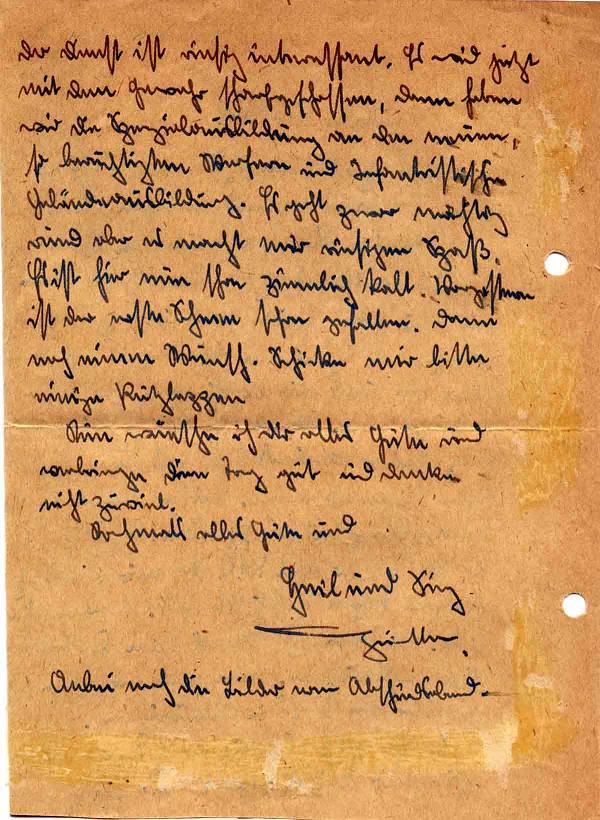 Der Dienst ist riesig interessant. Es wird jetzt
mit dem Gewehr scharfgeschossen, dann haben
wir die Spezialausbildung an den neuen,
so berüchtigten Werfern und Infantristische
Geländeausbildung. Es geht zwar mächtig
rund aber es macht mir riesigen Spaß.
Es ist hier nun schon ziemlich kalt. Vorgestern
ist der erste Schnee schon gefallen. Dann
noch einen Wunsch. Schicke mir bitte
einige Putzlappen
Nun wünsche ich dir alles Gute und
verbringe dein Tag gut und denke
nicht zuviel.
Nochmals alles Gute und
Heil und Sieg
Anbei noch die Bilder vom Abschiedsabend.